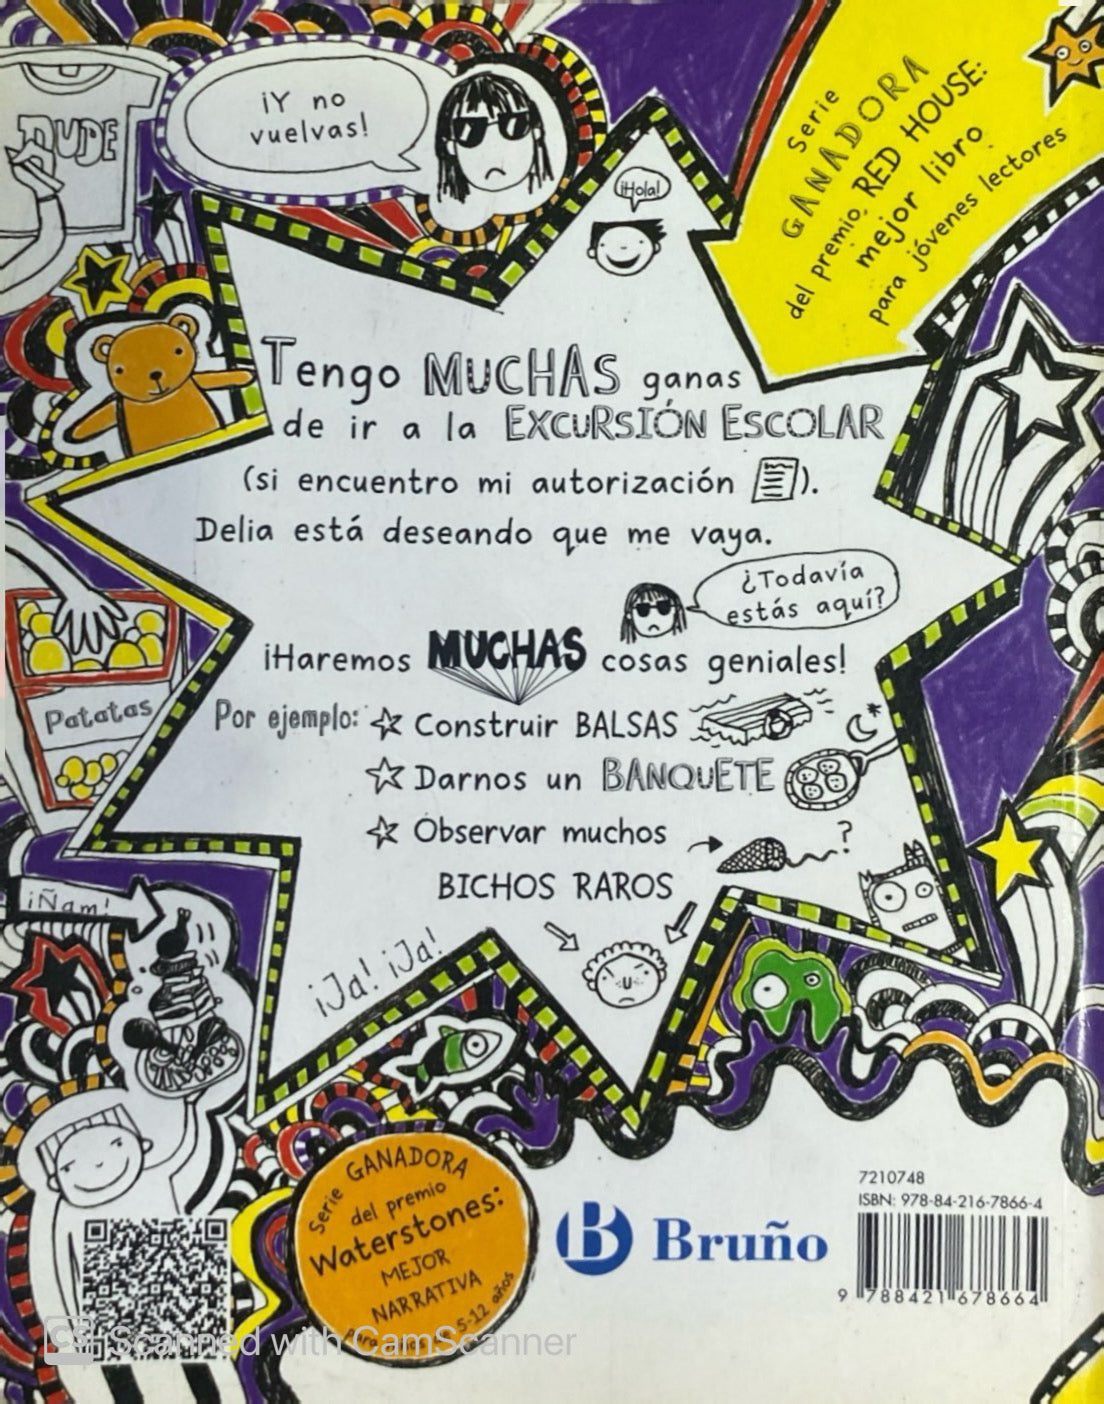 ¡Y no
vuelvas!
DUDE
¡Hola!
Serie
GANADORA
del premio RED HOUSE:
mejor libro
para jóvenes lectores
Tengo MUCHAS ganas
de ir a la EXCURSIÓN ESCOLAR
(si encuentro mi autorización ).
Delia está deseando que me vaya.
¿Todavía
estás aquí?
¡Haremos MUCHAS cosas geniales!
Por ejemplo: Construir BALSAS
Darnos un BANQUETE
Observar muchos
?
BICHOS RAROS
Patatas
¡Ñam!
¡Ja! ¡Ja!
Serie GANADORA
del premio
Waterstones:
MEJOR
NARRATIVA
5-12 años
B Bruño
7210748
ISBN: 978-84-216-7866-4
9 788421 678664
CS Scanned with CamScanner